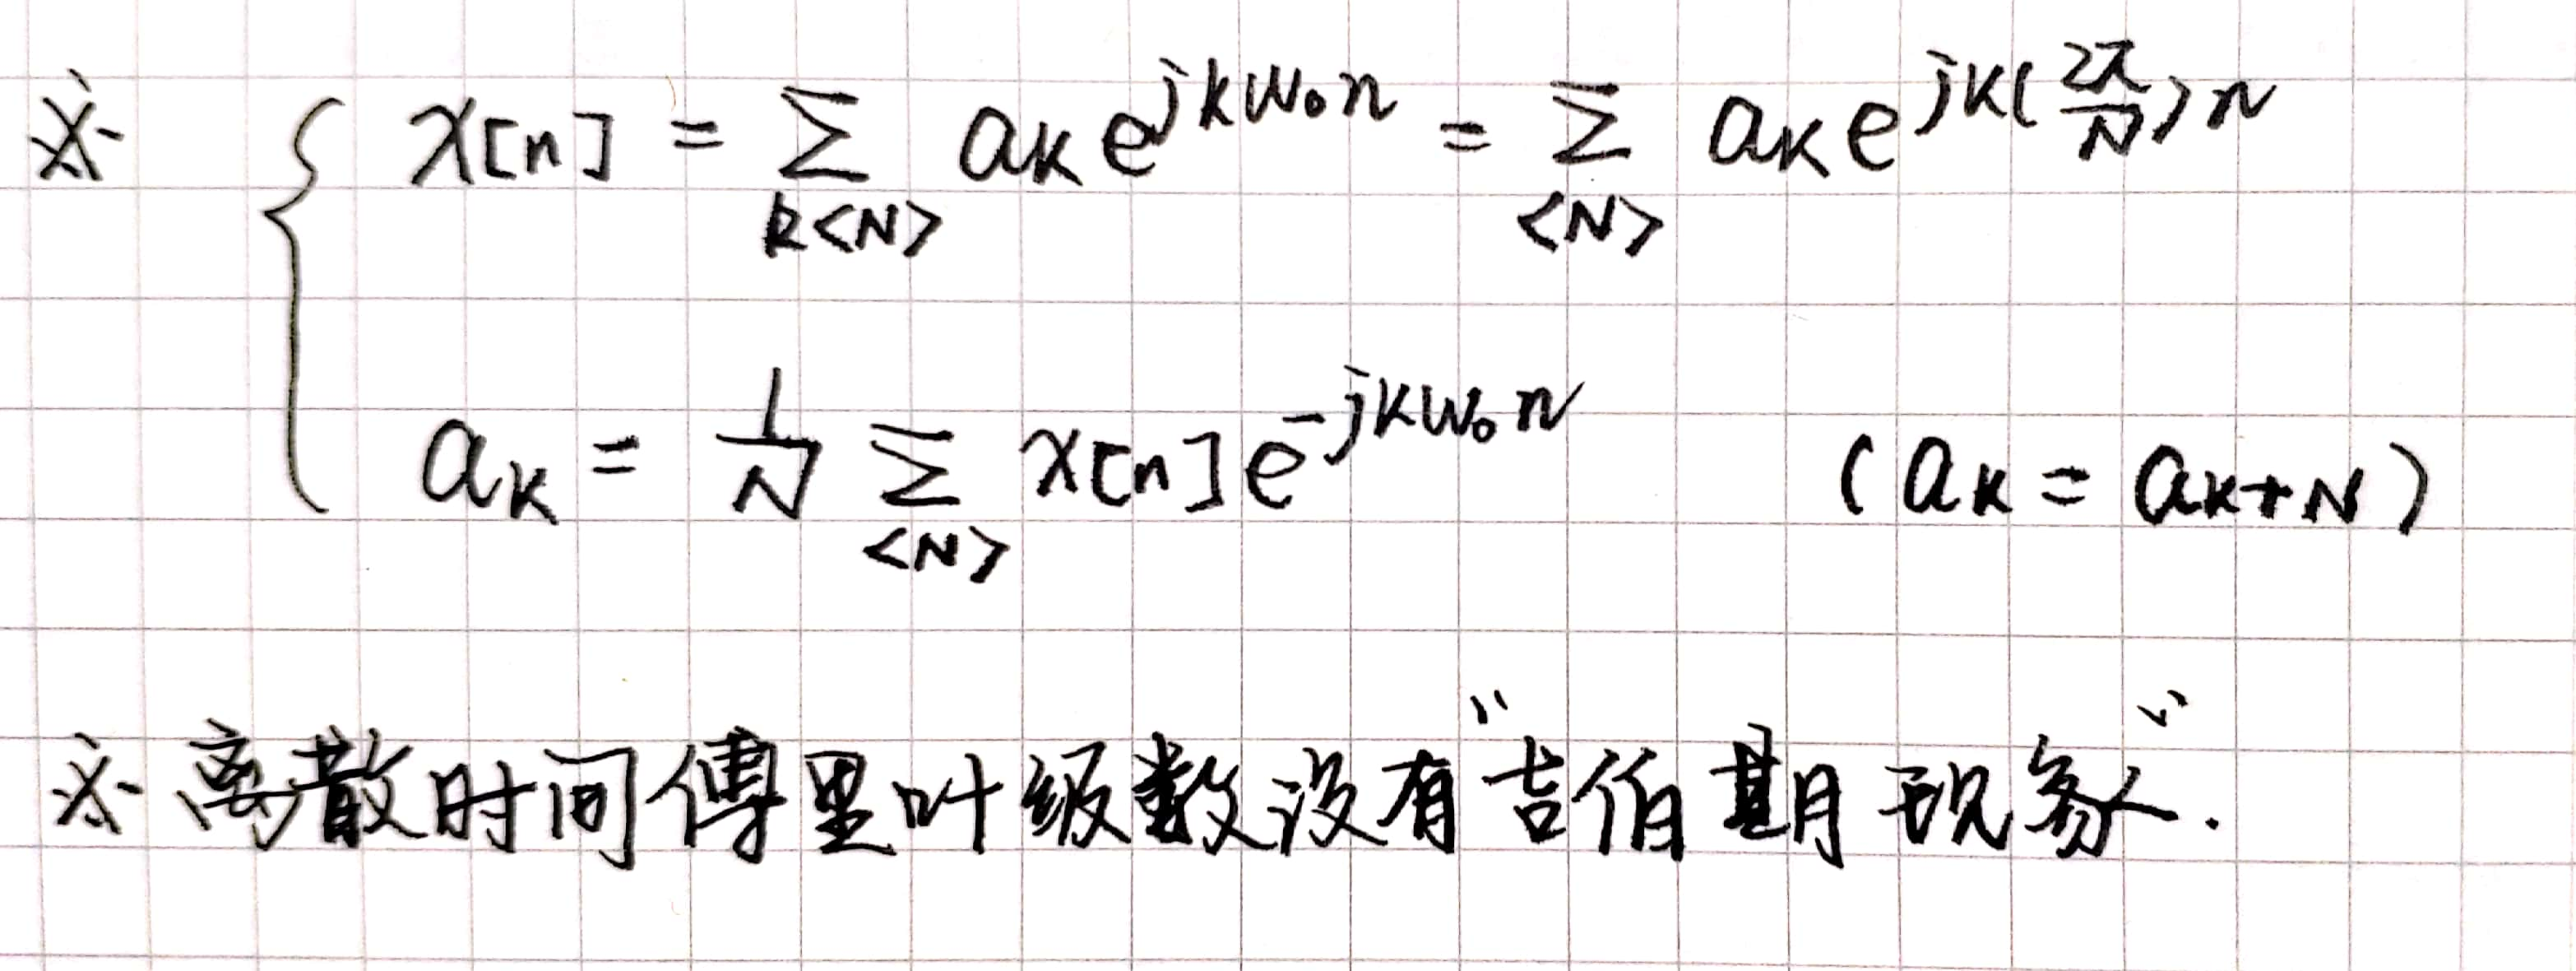 ※ { x[n] = Σ_{k<N>} a_k e^{jkω₀n} = Σ_{<N>} a_k e^{jk(2π/N)n}
a_k = 1/N Σ_{<N>} x[n] e^{-jkω₀n} (a_k = a_{k+N})
※ 离散时间傅里叶级数没有"吉伯斯现象".